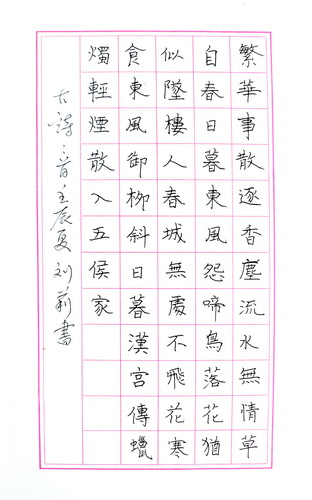 繁華事散逐香塵流水無情草
自春日暮東風怨啼鳥落花猶
似墜樓人春城無處不飛花寒
食東風御柳斜日暮漢宮傳蠟
燭輕煙散入五侯家
古詩二首壬辰夏刘莉書